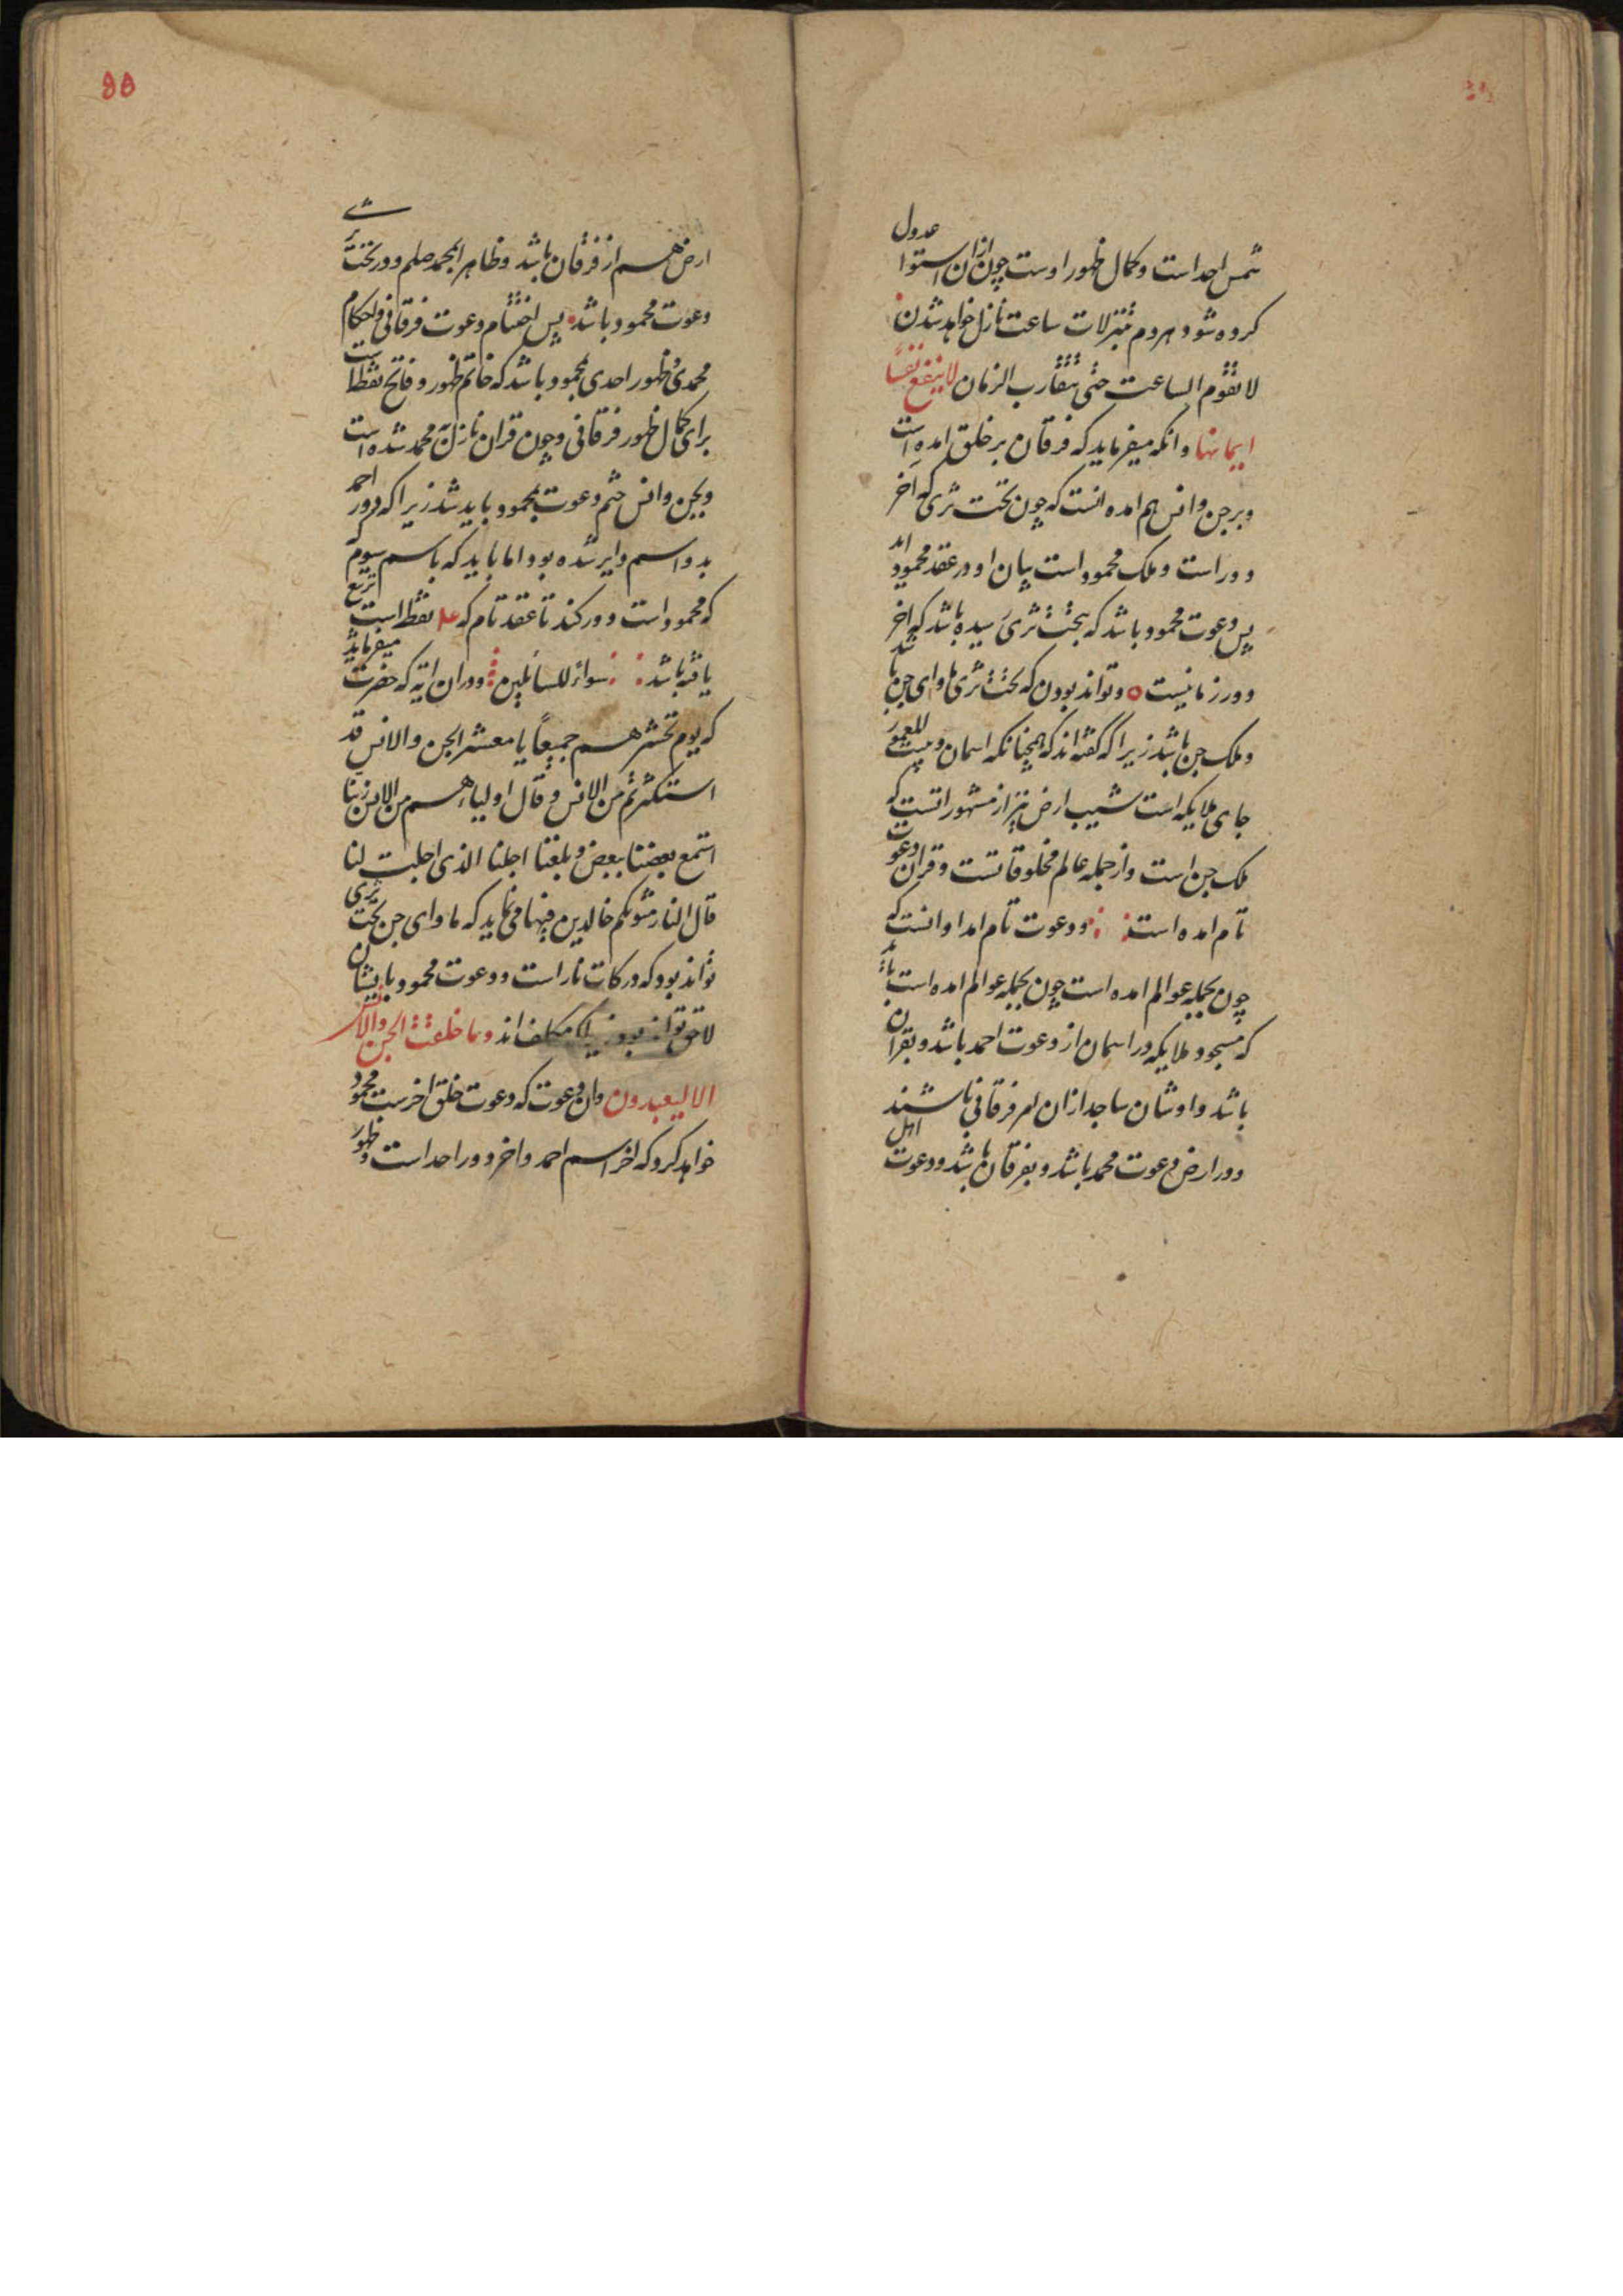 شمس احد است و کمال ظهور اوست چون ازان استوا عدول
کرده شود هر دم تنزلات ساعت نازل خواهد شدن
لا تقوم الساعت حتی یتقارب الزمان لا ینفع نفسًا
ایمانها و انکه میفرماید که فرقان بر خلق امده است
و بر جن و انس هم امده انست که چون تحت ثری که اخر
دور است و ملک محمود است بیان او در عقد محمود اید
پس دعوت محمود باشد که بتحت ثری رسیده باشد که اخر
دور زمانیست و تواند بودن که تحت ثری ماوای جن باشد
و ملک جن باشد زیرا که گفته اند که همچنانکه اسمان و بیت المعمور
جای ملایکه است شیب ارض نیز از مشهوراتست که
ملک جن است و از جمله عالم مخلوقاتست و قران دعوت
تام امده است و دعوت تام امد او انست که
چون بجمله عوالم امده است چون بجمله عوالم امده است باید
که مسجود ملایکه در اسمان از دعوت احمد باشد و بقران
باشد و اوشان ساجد ازان امر فرقانی باشند
و در ارض دعوت محمد باشد و بفرقان باشد و دعوت اهل
ارض هم از فرقان باشد و ظاهرا بمحمد صلعم و در تحت ثری
دعوت محمود باشد پس اختتام دعوت فرقانی و احکام
محمدی و ظهور احدی بمحمود باشد که خاتم ظهور و فاتح نقطا است
برای کمال ظهور فرقانی و چون قران نازل به محمد شده است
و بجن و انس ختم دعوت بمحمود باید شد زیرا که دور احمد
بدو اسم دایر شده بود اما باید که باسم سیوم
که محمود است دور کند تا عقد تام که نقطا است تربیع
یافته باشد سواء للسائلین و در ان ایه که حضرت میفرماید
که یوم تحشرهم جمیعاً یا معشر الجن و الانس قد
استکثرتم من الانس و قال اولیاءهم من الانس ربنا
استمع بعضنا ببعض و بلغنا اجلنا الذی اجلت لنا
قال النار مثویکم خالدین فیها می نماید که ماوای جن تحت ثری
تواند بود که درکات نار است و دعوت محمود بایشان
لاحق تواند بود مکلف اند و ما خلقت الجن و الانس
الا لیعبدون و ان دعوت که دعوت خلق اخرست محمود
خواهد کرد که اخر اسم احمد و اخر دور احد است و ظهور